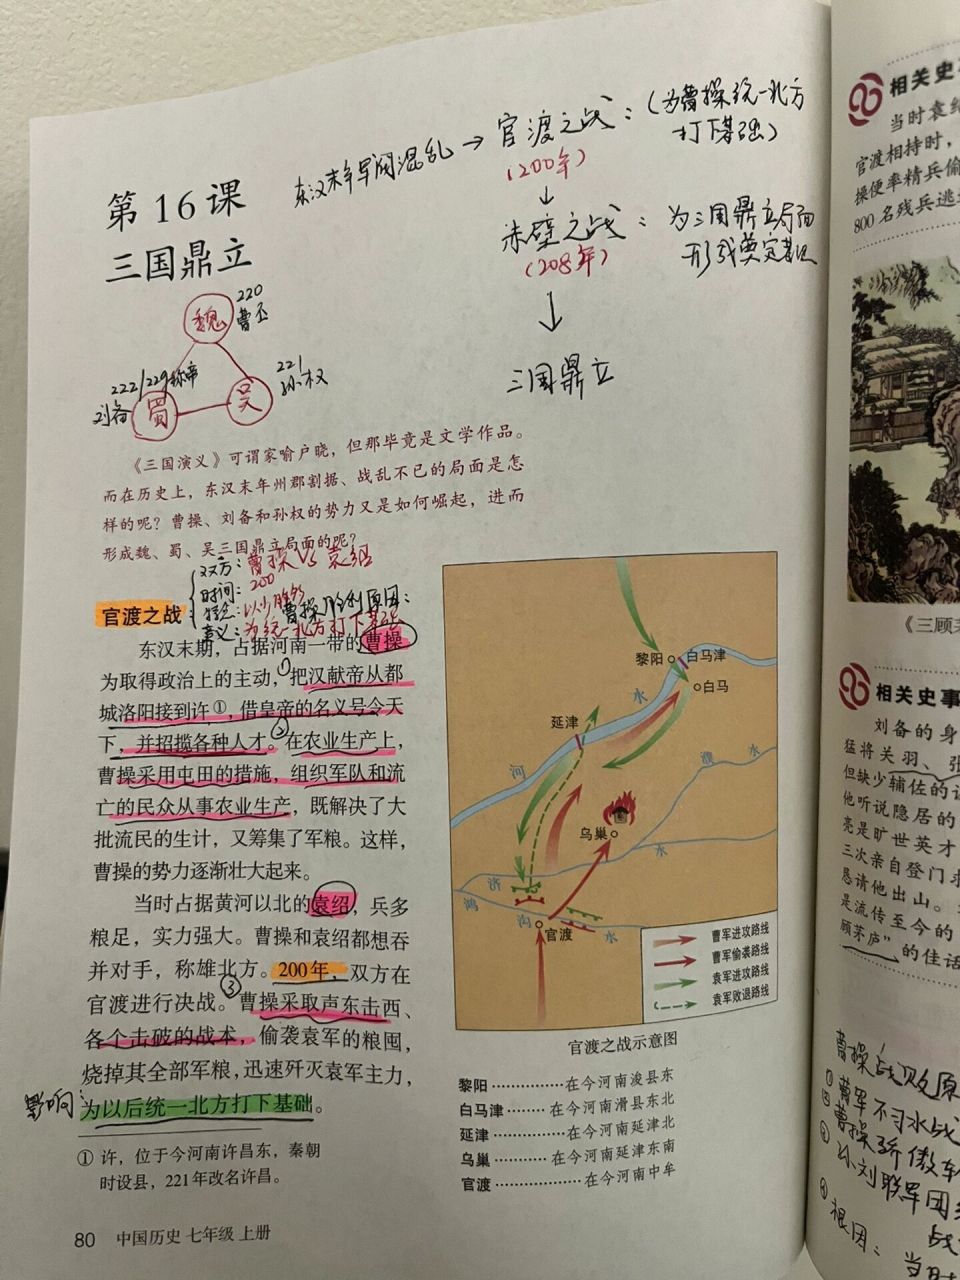 东汉末年军阀混乱→官渡之战：(为曹操统一北方
打下基础)
(200年)
赤壁之战：为三国鼎立局面
形成奠定基础
(208年)
三国鼎立
第16课
三国鼎立
魏
220
曹丕
222/229称帝
刘备
蜀
吴
221
孙权
《三国演义》可谓家喻户晓，但那毕竟是文学作品。
而在历史上，东汉末年州郡割据、战乱不已的局面是怎
样的呢？曹操、刘备和孙权的势力又是如何崛起，进而
形成魏、蜀、吴三国鼎立局面的呢？
双方：曹操 VS 袁绍
时间：200
特点：以少胜多
曹操胜利原因：
意义：为统一北方打下基础
官渡之战
东汉末期，占据河南一带的曹操
为取得政治上的主动，①把汉献帝从都
城洛阳接到许①，借皇帝的名义号令天
下，并招揽各种人才。②在农业生产上，
曹操采用屯田的措施，组织军队和流
亡的民众从事农业生产，既解决了大
批流民的生计，又筹集了军粮。这样，
曹操的势力逐渐壮大起来。
当时占据黄河以北的袁绍，兵多
粮足，实力强大。曹操和袁绍都想吞
并对手，称雄北方。200年，双方在
官渡进行决战。③曹操采取声东击西、
各个击破的战术，偷袭袁军的粮囤，
烧掉其全部军粮，迅速歼灭袁军主力，
影响：为以后统一北方打下基础。
① 许，位于今河南许昌东，秦朝
时设县，221年改名许昌。
80 中国历史 七年级 上册
黎阳
白马津
白马
延津
河
水
濮
水
乌巢
济
水
鸿
沟
水
官渡
曹军进攻路线
曹军偷袭路线
袁军进攻路线
袁军败退路线
官渡之战示意图
黎阳……………在今河南浚县东
白马津………在今河南滑县东北
延津……………在今河南延津北
乌巢……………在今河南延津东南
官渡……………在今河南中牟
相关史
当时袁绍
官渡相持时，
操便率精兵偷
800名残兵逃
《三顾茅
相关史事
刘备的身
猛将关羽、张
但缺少辅佐的谋
他听说隐居的
亮是旷世英才
三次亲自登门求
恳请他出山。
是流传至今的
顾茅庐”的佳话
曹操战败原
①曹军不习水战
曹操骄傲轻
孙刘联军团结
战
根因：当时